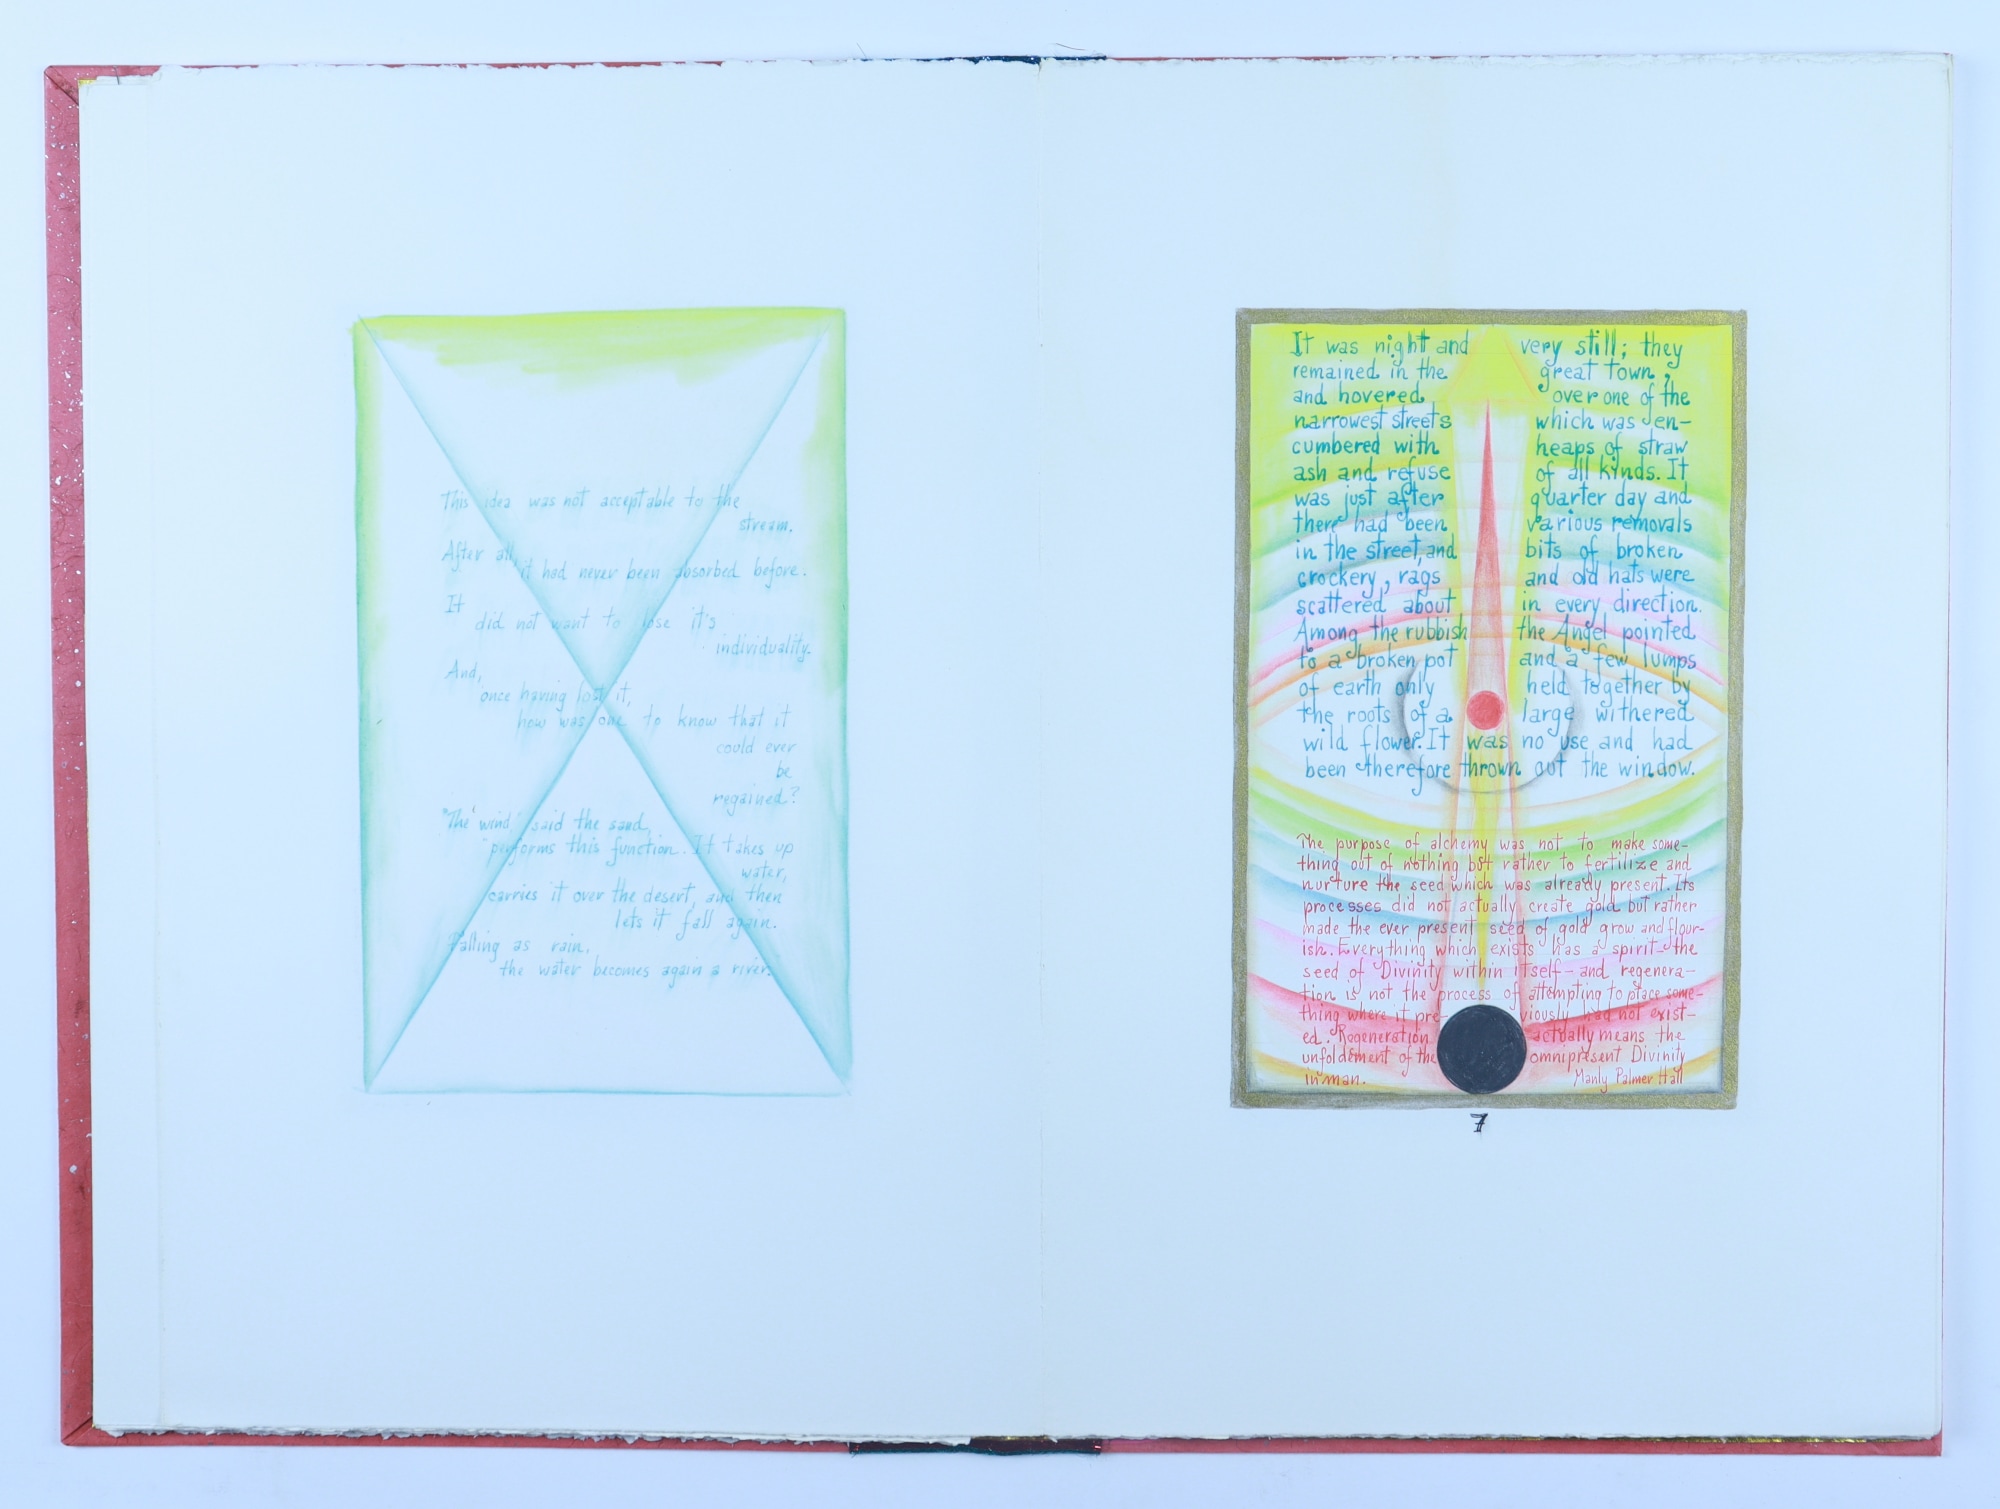 This idea was not acceptable to the
stream.
After all,
it had never been absorbed before.
It
did not want to lose it's
individuality.
And,
once having lost it,
how was one to know that it
could ever
be
regained?
"The wind," said the sand,
"performs this function. It takes up
water,
carries it over the desert, and then
lets it fall again.
Falling as rain,
the water becomes again a river."
It was night and very still; they
remained in the great town,
and hovered over one of the
narrowest streets which was en-
cumbered with heaps of straw
ash and refuse of all kinds. It
was just after quarter day and
there had been various removals
in the street, and bits of broken
crockery, rags and old hats were
scattered about in every direction.
Among the rubbish the Angel pointed
to a broken pot and a few lumps
of earth only held together by
the roots of a large withered
wild flower. It was no use and had
been therefore thrown out the window.
The purpose of alchemy was not to make some-
thing out of nothing but rather to fertilize and
nurture the seed which was already present. Its
processes did not actually create gold but rather
made the ever present seed of gold grow and flour-
ish. Everything which exists has a spirit - the
seed of Divinity within itself - and regenera-
tion is not the process of attempting to place some-
thing where it pre- viously had not exist-
ed. Regeneration actually means the
unfoldement of the omnipresent Divinity
in man. Manly Palmer Hall
7